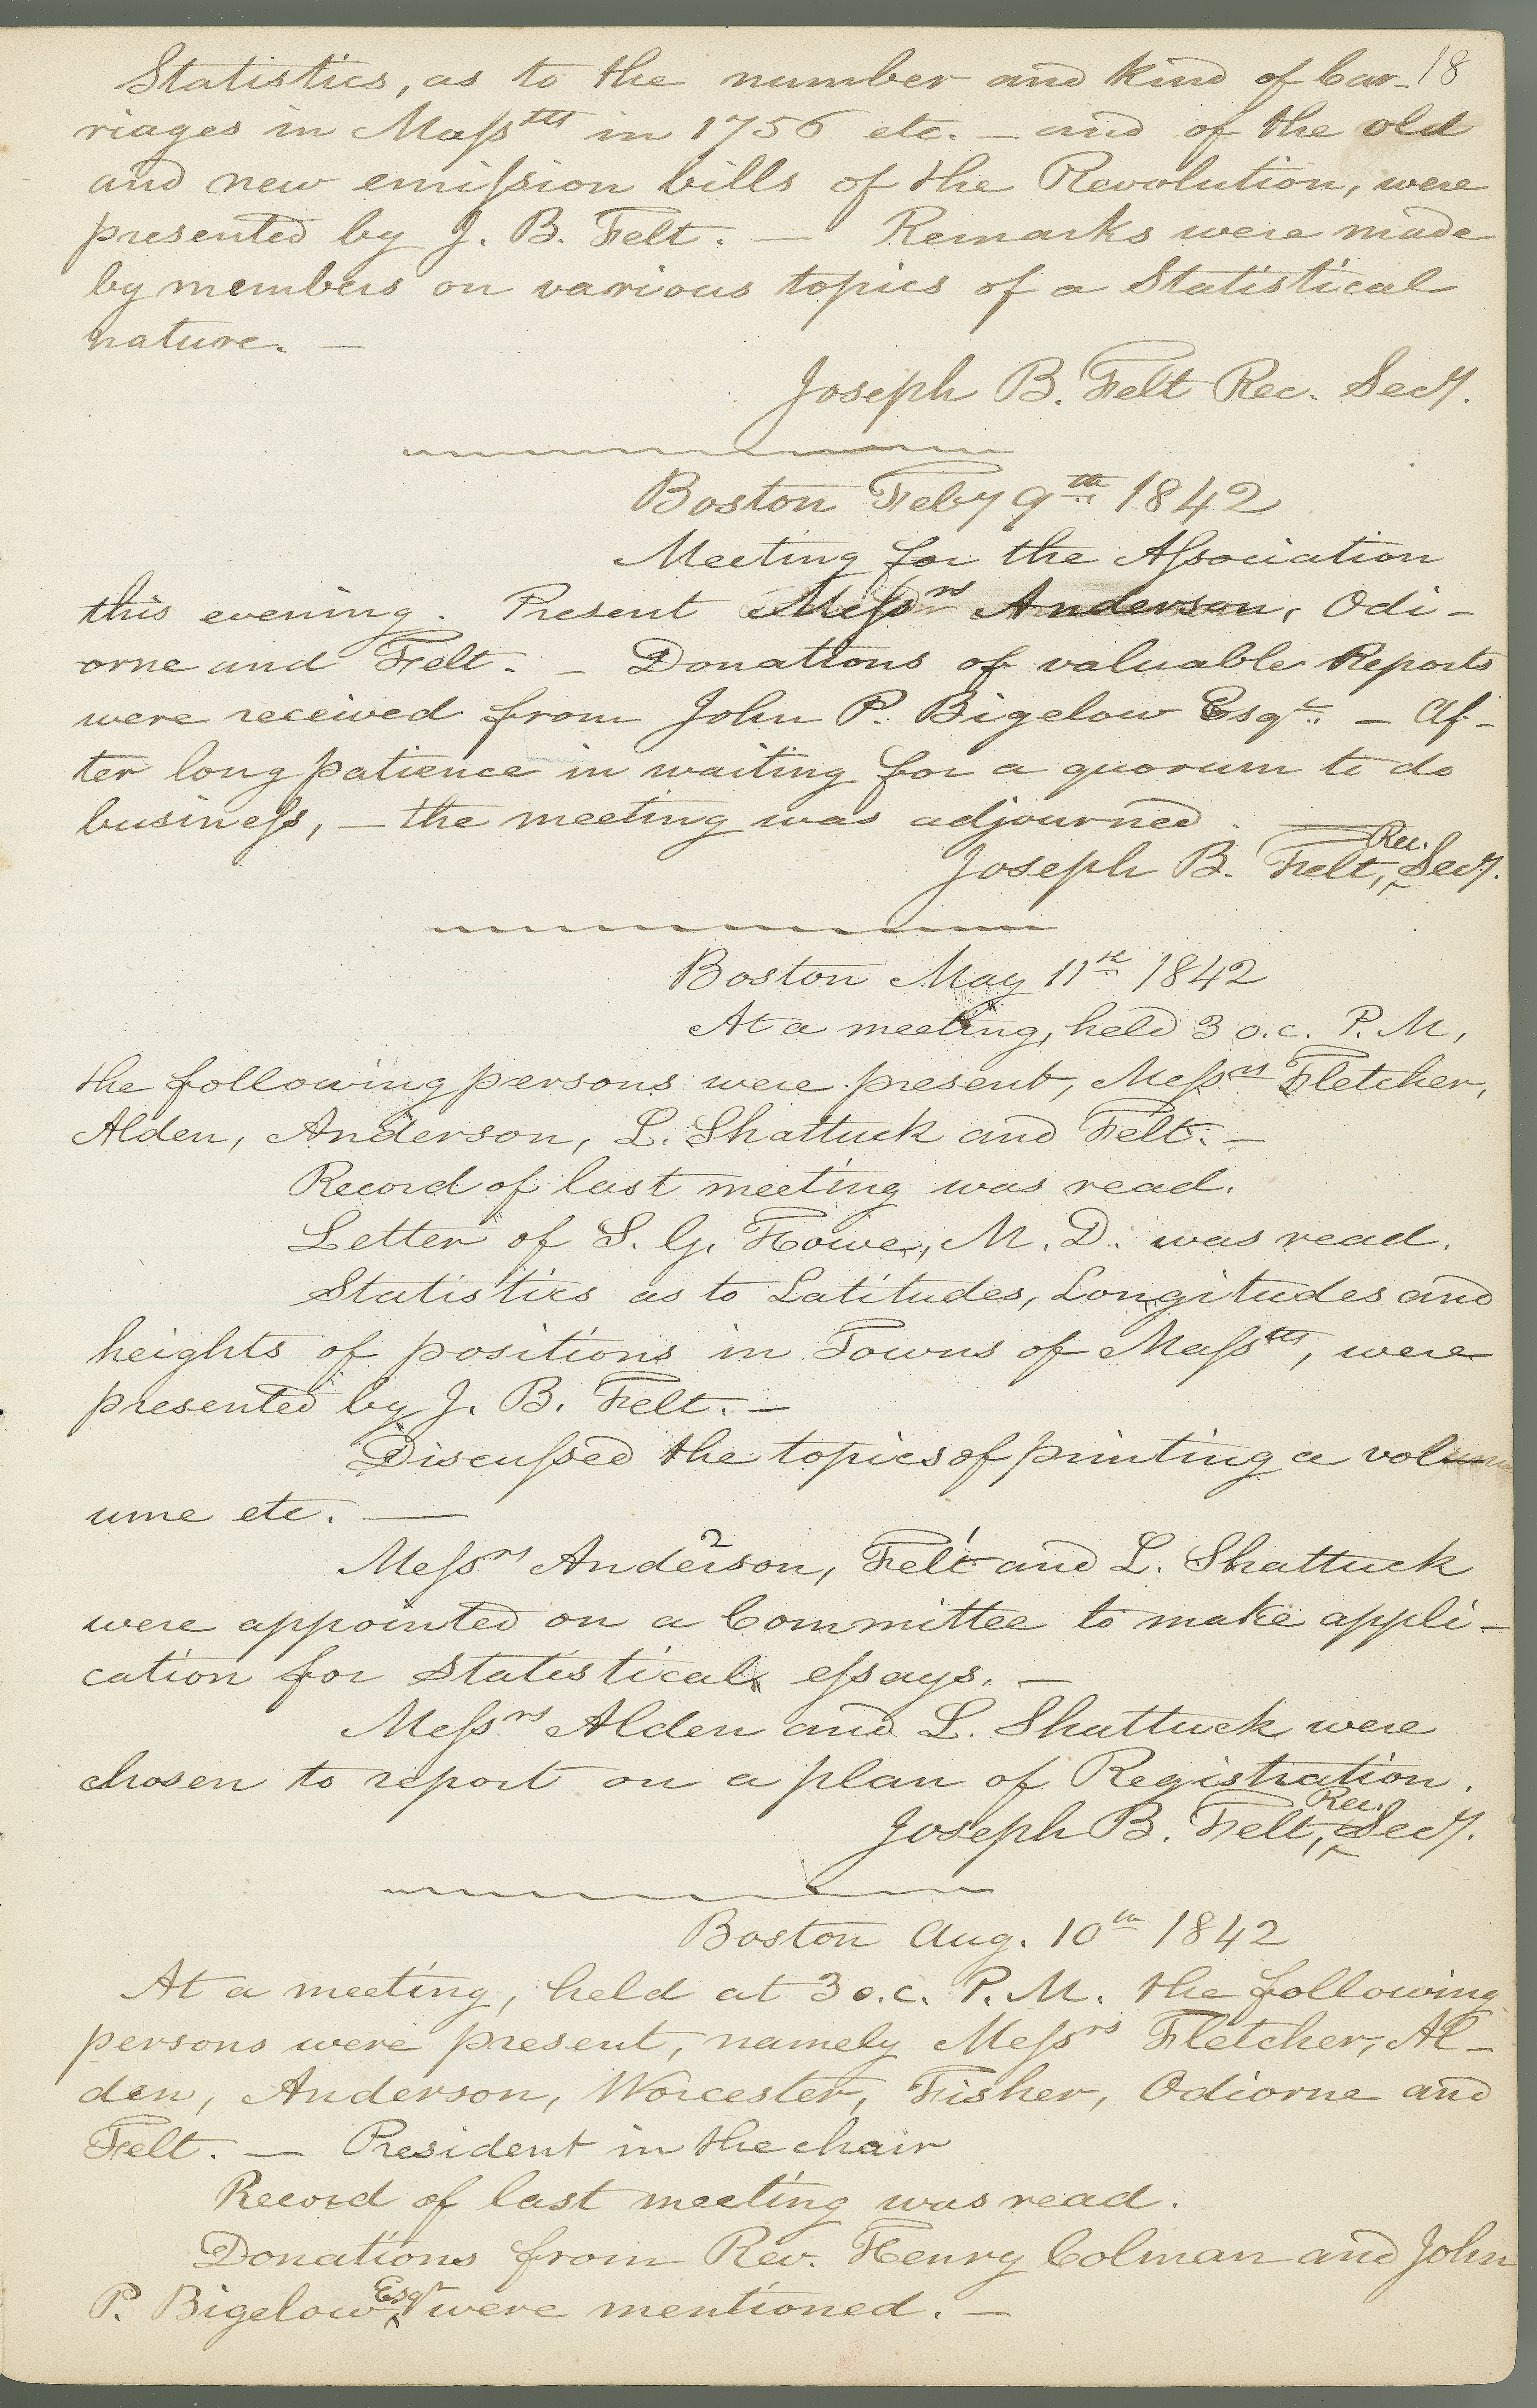 18
Statistics, as to the number and kind of Car-
riages in Masstts in 1756 etc. — and of the old
and new emission bills of the Revolution, were
presented by J. B. Felt. — Remarks were made
by members on various topics of a Statistical
nature. —
Joseph B. Felt Rec. Secy.
Boston Feby 9th 1842
Meeting for the Association
this evening. Present Messrs Anderson, Odi-
orne and Felt. — Donations of valuable Reports
were received from John P. Bigelow Esqr. — Af-
ter long patience in waiting for a quorum to do
business, — the meeting was adjourned. —
Joseph B. Felt, Rec. Secy.
Boston May 11th 1842
At a meeting, held 3 o.c. P. M,
the following persons were present, Messrs Fletcher,
Alden, Anderson, L. Shattuck and Felt. —
Record of last meeting was read.
Letter of S. G. Howe, M. D. was read.
Statistics as to Latitudes, Longitudes and
heights of positions in Towns of Masstts, were
presented by J. B. Felt. —
Discussed the topics of printing a vol
ume etc. —
Messrs Anderson, 2 Felt 1 and L. Shattuck
were appointed on a Committee to make appli-
cation for Statistical essays. —
Messrs Alden and L. Shattuck were
chosen to report on a plan of Registration.
Joseph B. Felt, Rec. Secy.
Boston Aug. 10th 1842
At a meeting, held at 3 o.c. P. M. the following
persons were present, namely Messrs Fletcher, Al-
den, Anderson, Worcester, Fisher, Odiorne and
Felt. — President in the chair
Record of last meeting was read.
Donations from Rev. Henry Colman and John
P. Bigelow Esqr were mentioned. —